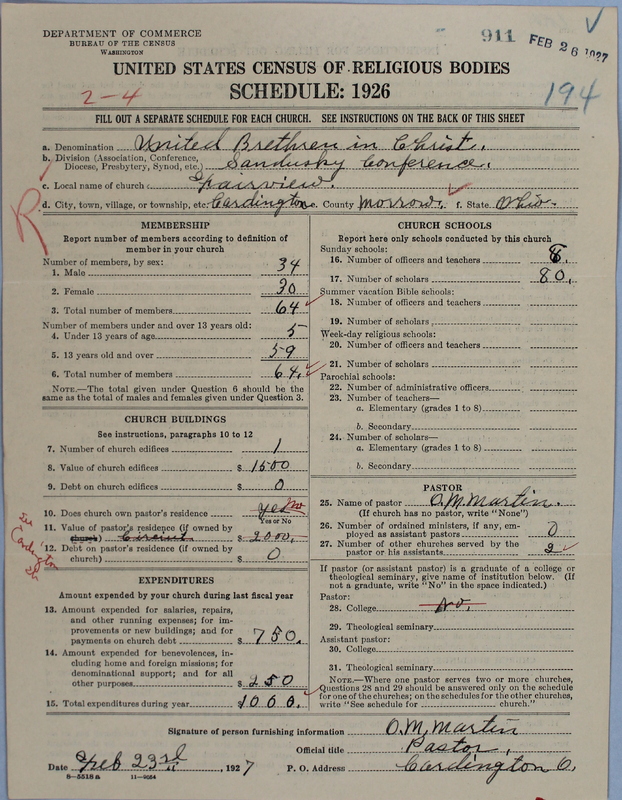 DEPARTMENT OF COMMERCE
BUREAU OF THE CENSUS
WASHINGTON
911 FEB 26 1927
UNITED STATES CENSUS OF RELIGIOUS BODIES
2-4 SCHEDULE: 1926 194
FILL OUT A SEPARATE SCHEDULE FOR EACH CHURCH. SEE INSTRUCTIONS ON THE BACK OF THIS SHEET
a. Denomination United Brethren in Christ.
b. Division (Association, Conference, Diocese, Presbytery, Synod, etc.) Sandusky Conference.
c. Local name of church Fairview.
R. d. City, town, village, or township, etc. Cardington e. County Morrow. f. State Ohio.
MEMBERSHIP
Report number of members according to definition of
member in your church
Number of members, by sex:
1. Male 34
2. Female 30
3. Total number of members 64
Number of members under and over 13 years old:
4. Under 13 years of age 5
5. 13 years old and over 59
6. Total number of members 64.
NOTE.—The total given under Question 6 should be
same as the total of males and females given under Question 3.
CHURCH BUILDINGS
See instructions, paragraphs 10 to 12
7. Number of church edifices 1
8. Value of church edifices $ 1500
9. Debt on church edifices $ 0
10. Does church own pastor's residence yes no
Yes or No
11. Value of pastor's residence (if owned by
church) Circuit $ 2000.
12. Debt on pastor's residence (if owned by
church) $ 0
see
Cardington
ch
EXPENDITURES
Amount expended by your church during last fiscal year
13. Amount expended for salaries, repairs,
and other running expenses; for im-
provements or new buildings; and for
payments on church debt $ 750.
14. Amount expended for benevolences, in-
cluding home and foreign missions; for
denominational support; and for all
other purposes $ 250
15. Total expenditures during year $ 1000.
CHURCH SCHOOLS
Report here only schools conducted by this church
Sunday schools:
16. Number of officers and teachers 8.
17. Number of scholars 80.
Summer vacation Bible schools:
18. Number of officers and teachers
19. Number of scholars
Week-day religious schools:
20. Number of officers and teachers
21. Number of scholars
Parochial schools:
22. Number of administrative officers
23. Number of teachers—
a. Elementary (grades 1 to 8)
b. Secondary
24. Number of scholars—
a. Elementary (grades 1 to 8)
b. Secondary
PASTOR
25. Name of pastor O.M. Martin.
(If church has no pastor, write "None")
26. Number of ordained ministers, if any, em-
ployed as assistant pastors 0
27. Number of other churches served by the
pastor or his assistants 2
If pastor (or assistant pastor) is a graduate of a college or
theological seminary, give name of institution below. (If
not a graduate, write "No" in the space indicated.)
Pastor:
28. College No.
29. Theological seminary
Assistant pastor:
30. College
31. Theological seminary
NOTE.—Where one pastor serves two or more churches,
Questions 28 and 29 should be answered only on the schedule
for one of the churches; on the schedules for the other churches,
write "See schedule for church."
Signature of person furnishing information O.M. Martin
Official title Pastor,
Date Feb 23rd, 1927 P. O. Address Cardington O.
8—5518a 11—9054